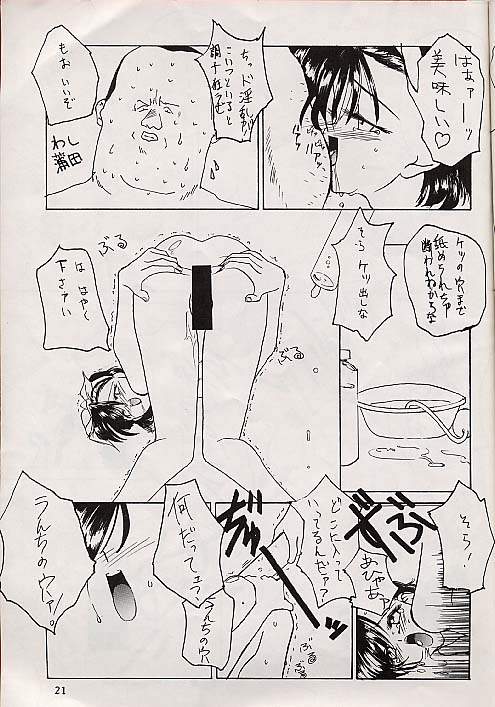 はぁァーッ
美味しい♡
ちっド淫乱が
こいつといると
調子狂うぜ
もおいいぞ
わし
鷲田
ケツの穴まで
舐められちゃ
そら ケツ出しな
は はやく
下さァい
ぶる
ぶる
そら!
ぶぢゅーッ
あひゃあァ
どこに入って
いってるんだァ?
何だってェ?
うんちの穴
うんちの穴ァ!
ぶる
ぶる
21